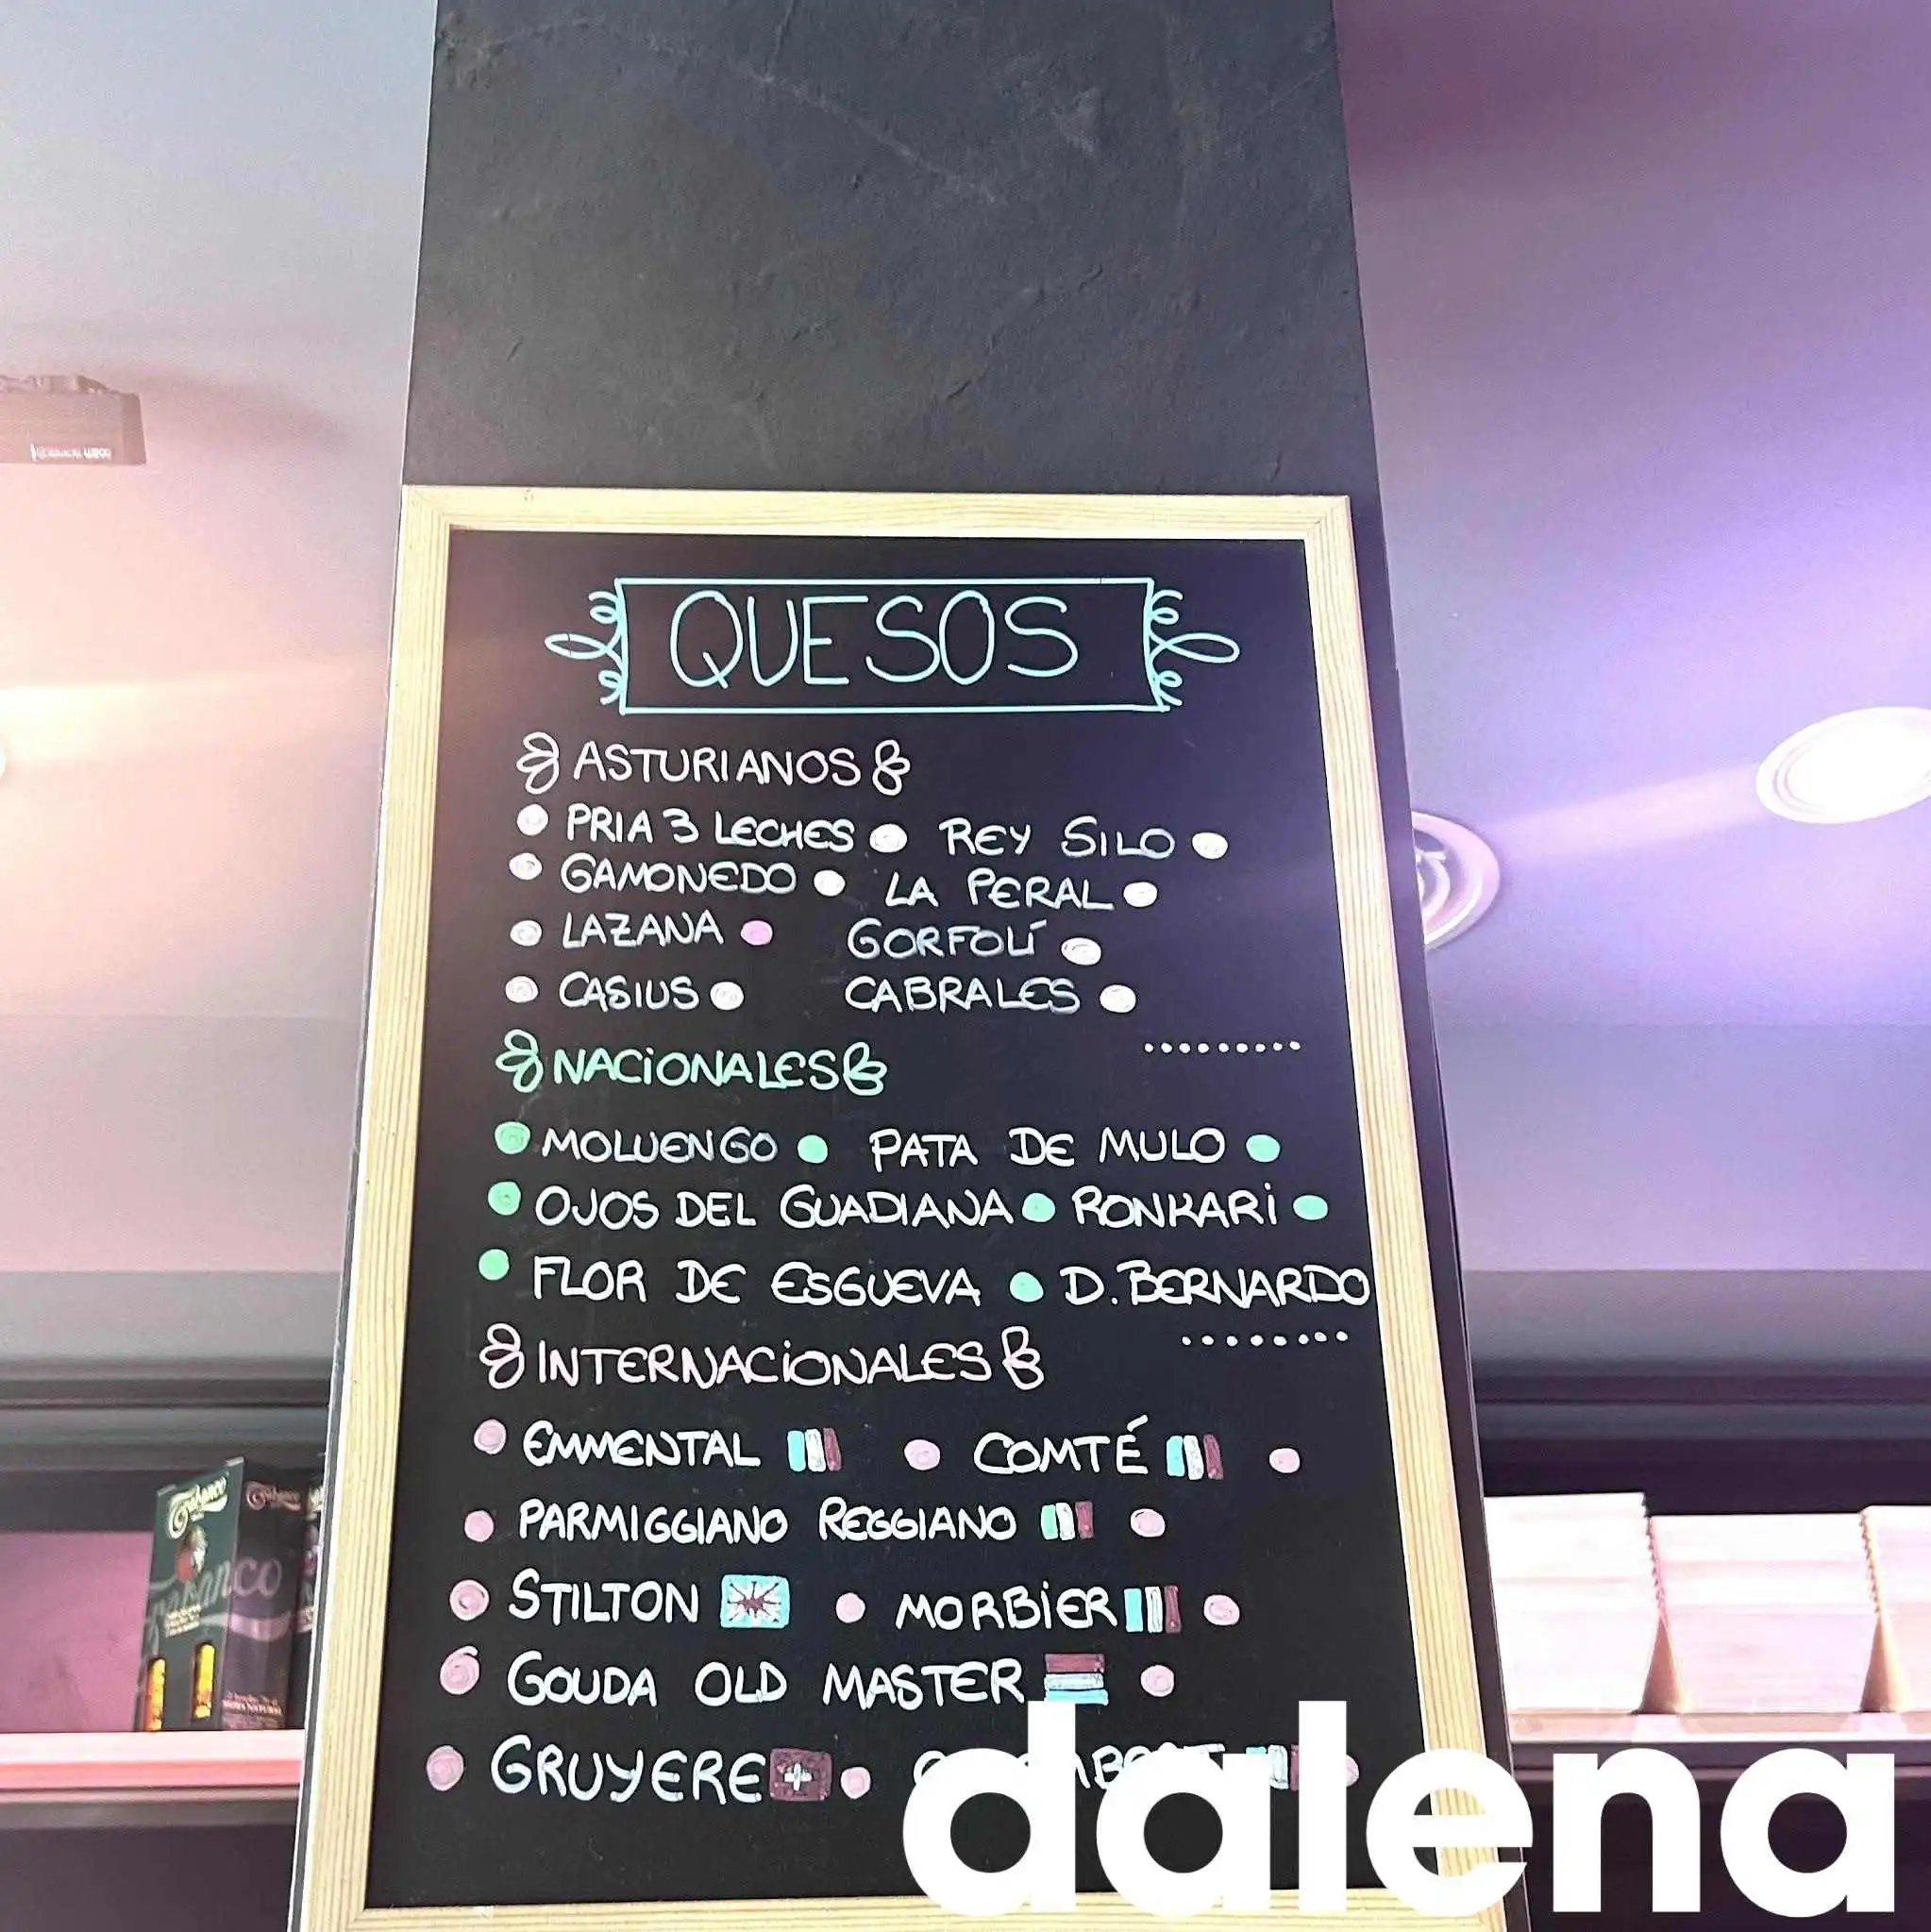 QUESOS
ASTURIANOS
PRIA 3 LECHES REY SILO
GAMONEDO LA PERAL
LAZANA GORFOLÍ
CASIUS CABRALES
NACIONALES
MOLUENGO PATA DE MULO
OJOS DEL GUADIANA RONKARI
FLOR DE ESGUEVA D. BERNARDO
INTERNACIONALES
EMMENTAL COMTÉ
PARMIGGIANO REGGIANO
STILTON MORBIER
GOUDA OLD MASTER
GRUYERE
Trabanco
dalena